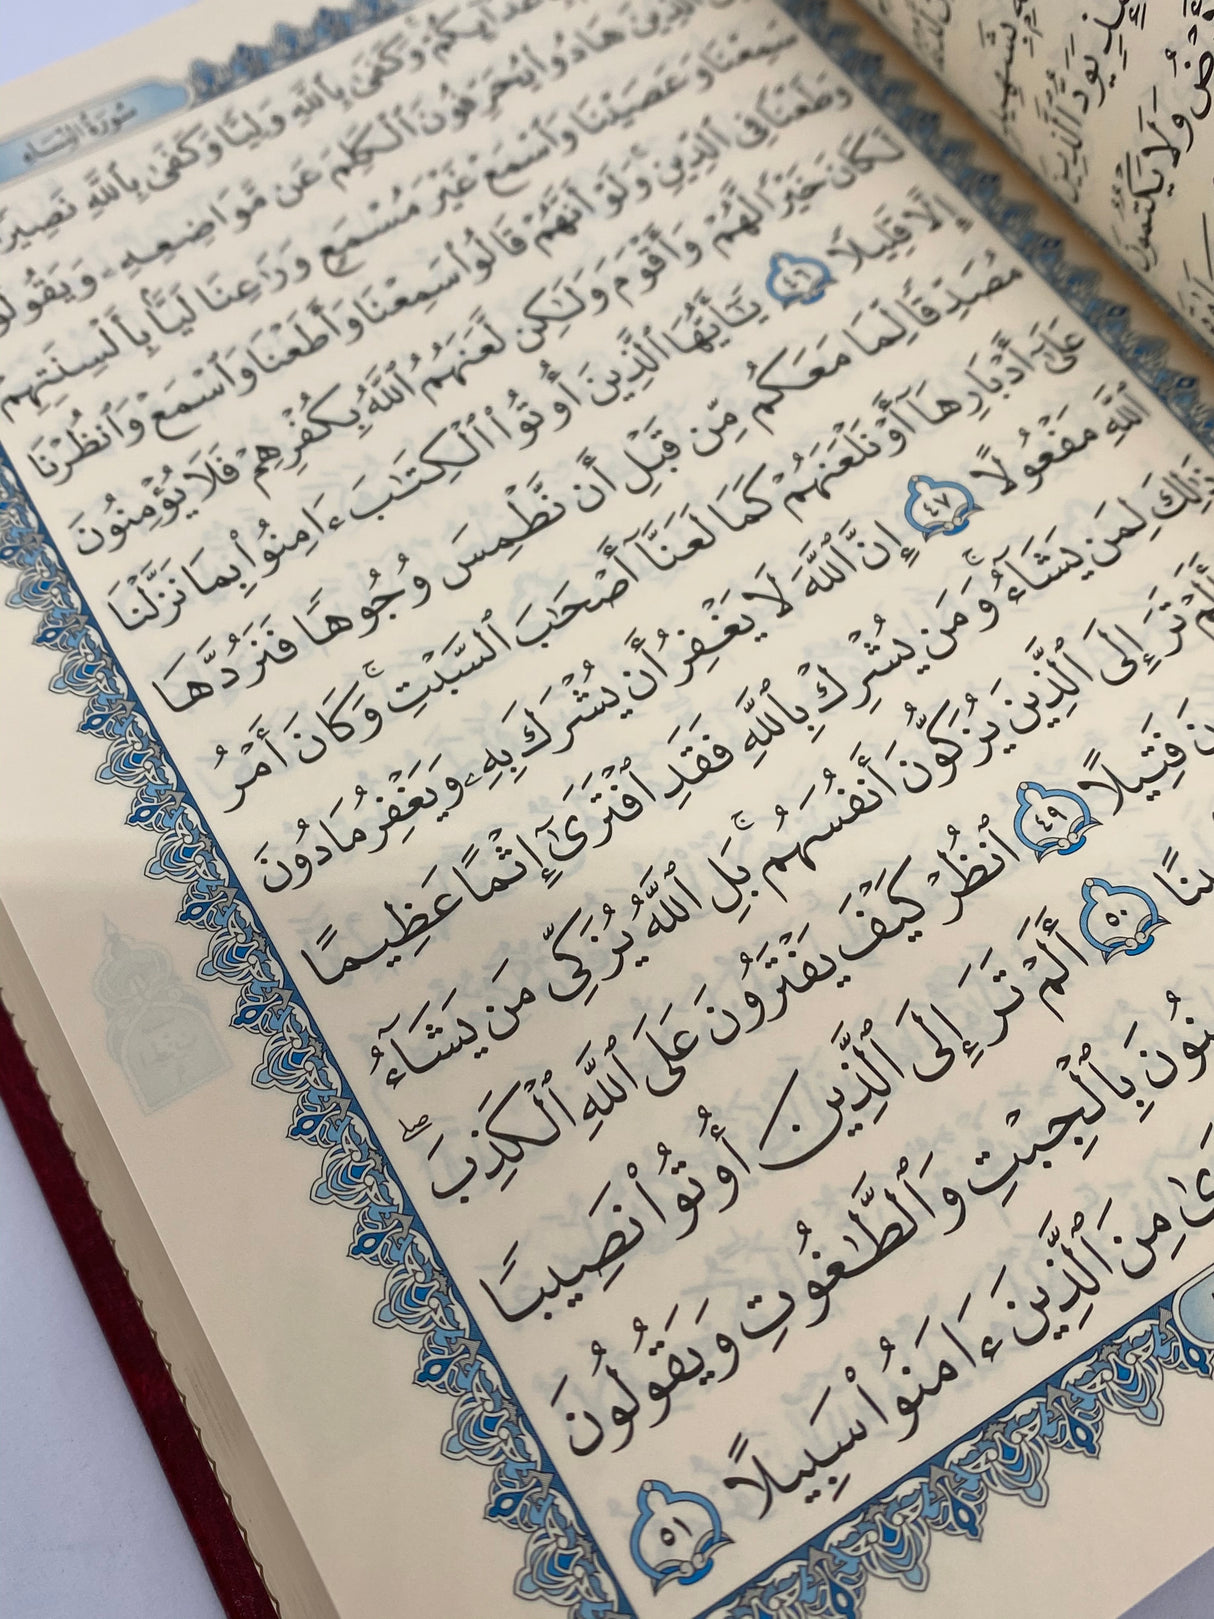 سُورَةُ النِّسَاءِ
وَكَفَىٰ بِٱللَّهِ وَلِيّٗا وَكَفَىٰ بِٱللَّهِ نَصِيرٗا
ٱلَّذِينَ هَادُواْ يُحَرِّفُونَ ٱلۡكَلِمَ عَن مَّوَاضِعِهِۦ وَيَقُولُو
سَمِعۡنَا وَعَصَيۡنَا وَٱسۡمَعۡ غَيۡرَ مُسۡمَعٖ وَرَٰعِنَا لَيَّۢا بِأَلۡسِنَتِهِمۡ
وَطَعۡنٗا فِي ٱلدِّينِۚ وَلَوۡ أَنَّهُمۡ قَالُواْ سَمِعۡنَا وَأَطَعۡنَا وَٱسۡمَعۡ وَٱنظُرۡنَا
لَكَانَ خَيۡرٗا لَّهُمۡ وَأَقۡوَمَ وَلَٰكِن لَّعَنَهُمُ ٱللَّهُ بِكُفۡرِهِمۡ فَلَا يُؤۡمِنُونَ
إِلَّا قَلِيلٗا ٤٦ يَٰٓأَيُّهَا ٱلَّذِينَ أُوتُواْ ٱلۡكِتَٰبَ ءَامِنُواْ بِمَا نَزَّلۡنَا
مُصَدِّقٗا لِّمَا مَعَكُم مِّن قَبۡلِ أَن نَّطۡمِسَ وُجُوهٗا فَنَرُدَّهَا
عَلَىٰٓ أَدۡبَارِهَآ أَوۡ نَلۡعَنَهُمۡ كَمَا لَعَنَّآ أَصۡحَٰبَ ٱلسَّبۡتِۚ وَكَانَ أَمۡرُ
ٱللَّهِ مَفۡعُولًا ٤٧ إِنَّ ٱللَّهَ لَا يَغۡفِرُ أَن يُشۡرَكَ بِهِۦ وَيَغۡفِرُ مَا دُونَ
ذَٰلِكَ لِمَن يَشَآءُۚ وَمَن يُشۡرِكۡ بِٱللَّهِ فَقَدِ ٱفۡتَرَىٰٓ إِثۡمًا عَظِيمًا
أَلَمۡ تَرَ إِلَى ٱلَّذِينَ يُزَكُّونَ أَنفُسَهُمۚ بَلِ ٱللَّهُ يُزَكِّي مَن يَشَآءُ
نَ فَتِيلًا ٤٩ ٱنظُرۡ كَيۡفَ يَفۡتَرُونَ عَلَى ٱللَّهِ ٱلۡكَذِبَۖ
ينًا ٥٠ أَلَمۡ تَرَ إِلَى ٱلَّذِينَ أُوتُواْ نَصِيبٗا
نُونَ بِٱلۡجِبۡتِ وَٱلطَّٰغُوتِ وَيَقُولُونَ
ىٰ مِنَ ٱلَّذِينَ ءَامَنُواْ سَبِيلًا ٥١